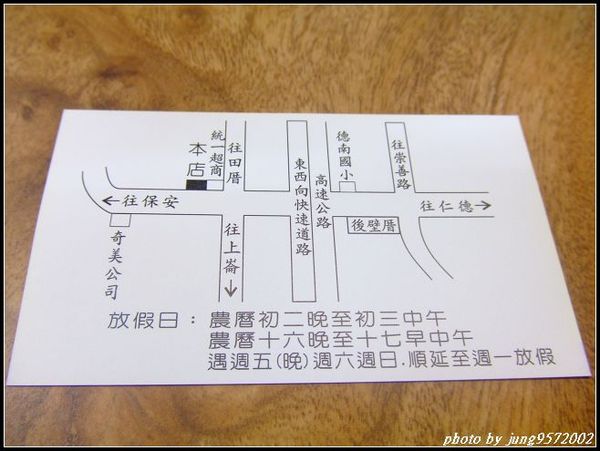 本店
統一超商
往田厝
東西向快速道路
高速公路
德南國小
往崇善路
←往保安
往仁德→
奇美公司
往上崙↓
後壁厝
放假日：農曆初二晚至初三中午
農曆十六晚至十七早中午
遇週五(晚)週六週日.順延至週一放假
photo by jung9572002